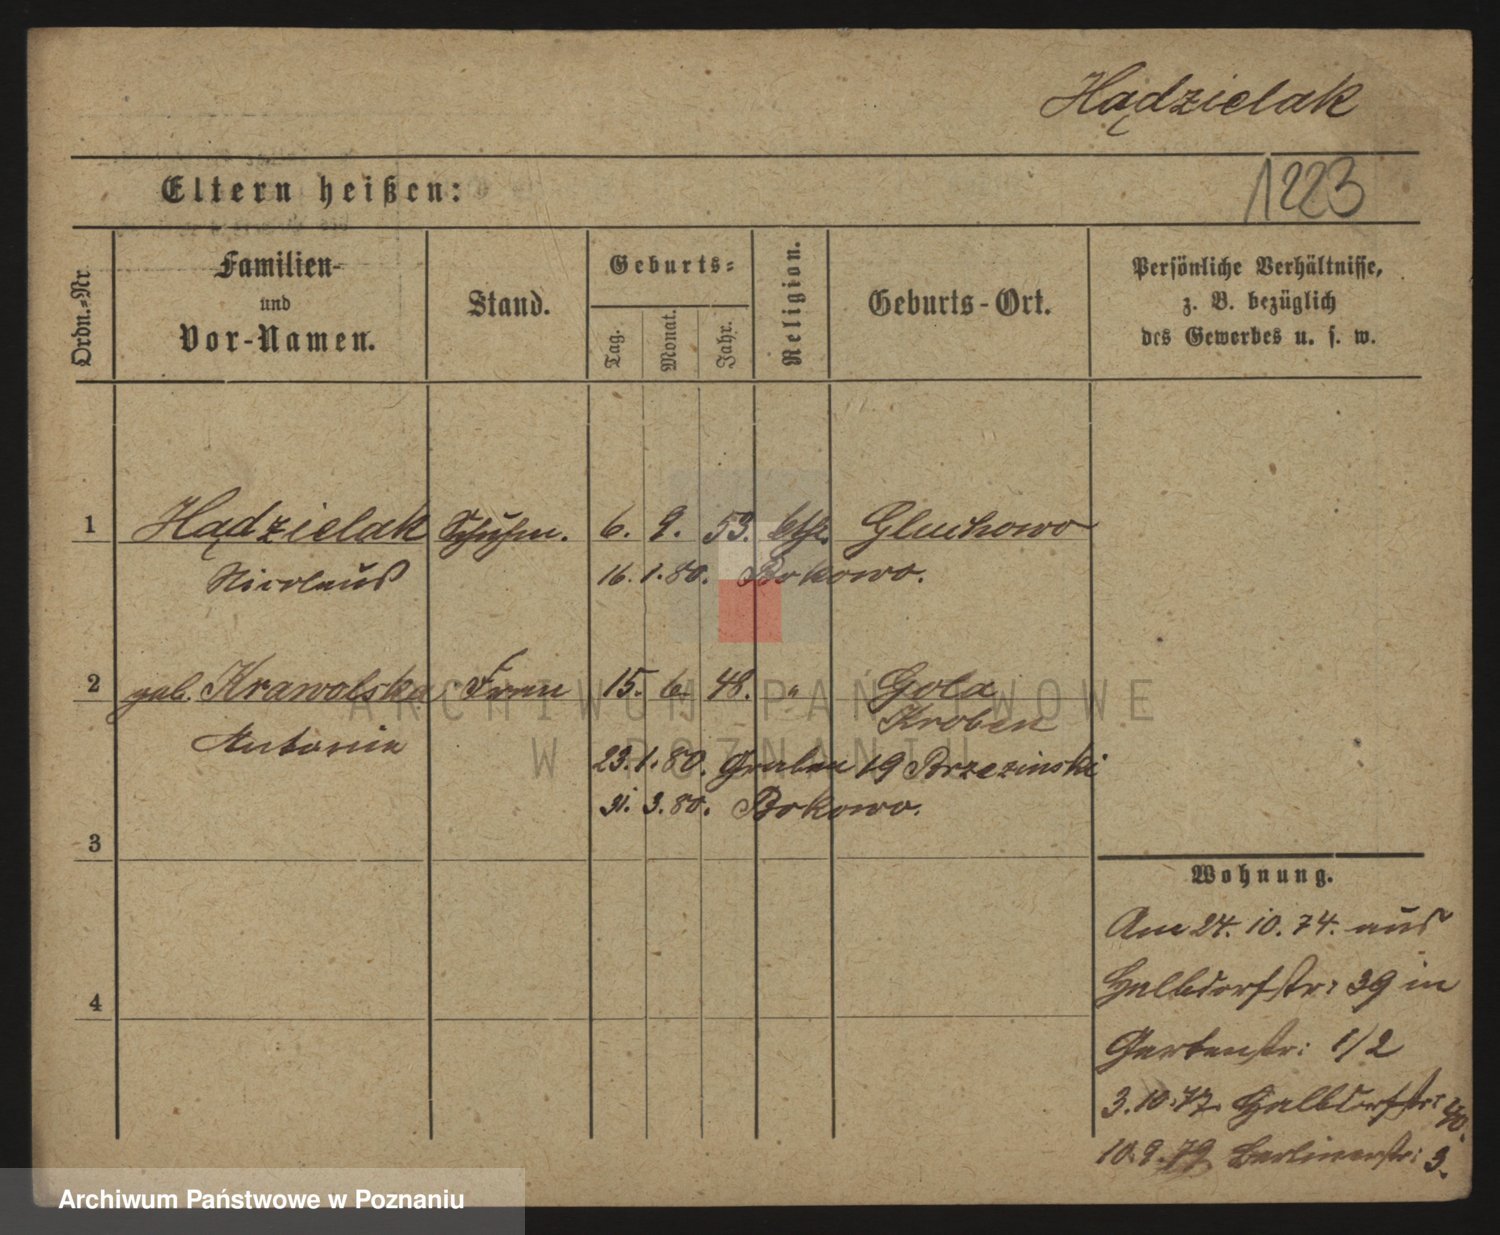 Hądzielak
1223
Eltern heißen:
Ordn.-Nr.
Familien-
und
Vor-Namen.
Stand.
Geburts-
Tag.
Monat.
Jahr.
Religion.
Geburts-Ort.
Persönliche Verhältnisse,
z. B. bezüglich
des Gewerbes u. s. w.
1 Hądzielak Schuhm. 6. 9. 53. kth. Gluchowo
Nicolaus 16. 1. 80. Bokowo.
2 geb. Krawolska Frau 15. 6. 48. " Gola
Kroben
Antonie
23. 1. 80. Graben 19 Brzezinski
31. 3. 80. Bokowo.
3
4
Wohnung.
Am 24. 10. 74. aus
Halbdorfstr: 39 in
Gartenstr: 1/2
3. 10. 77. Halbdorfstr: 40.
10. 9. 79 Berlinerstr: 3.
ARCHIWUM PAŃSTWOWE
W POZNANIU
Archiwum Państwowe w Poznaniu